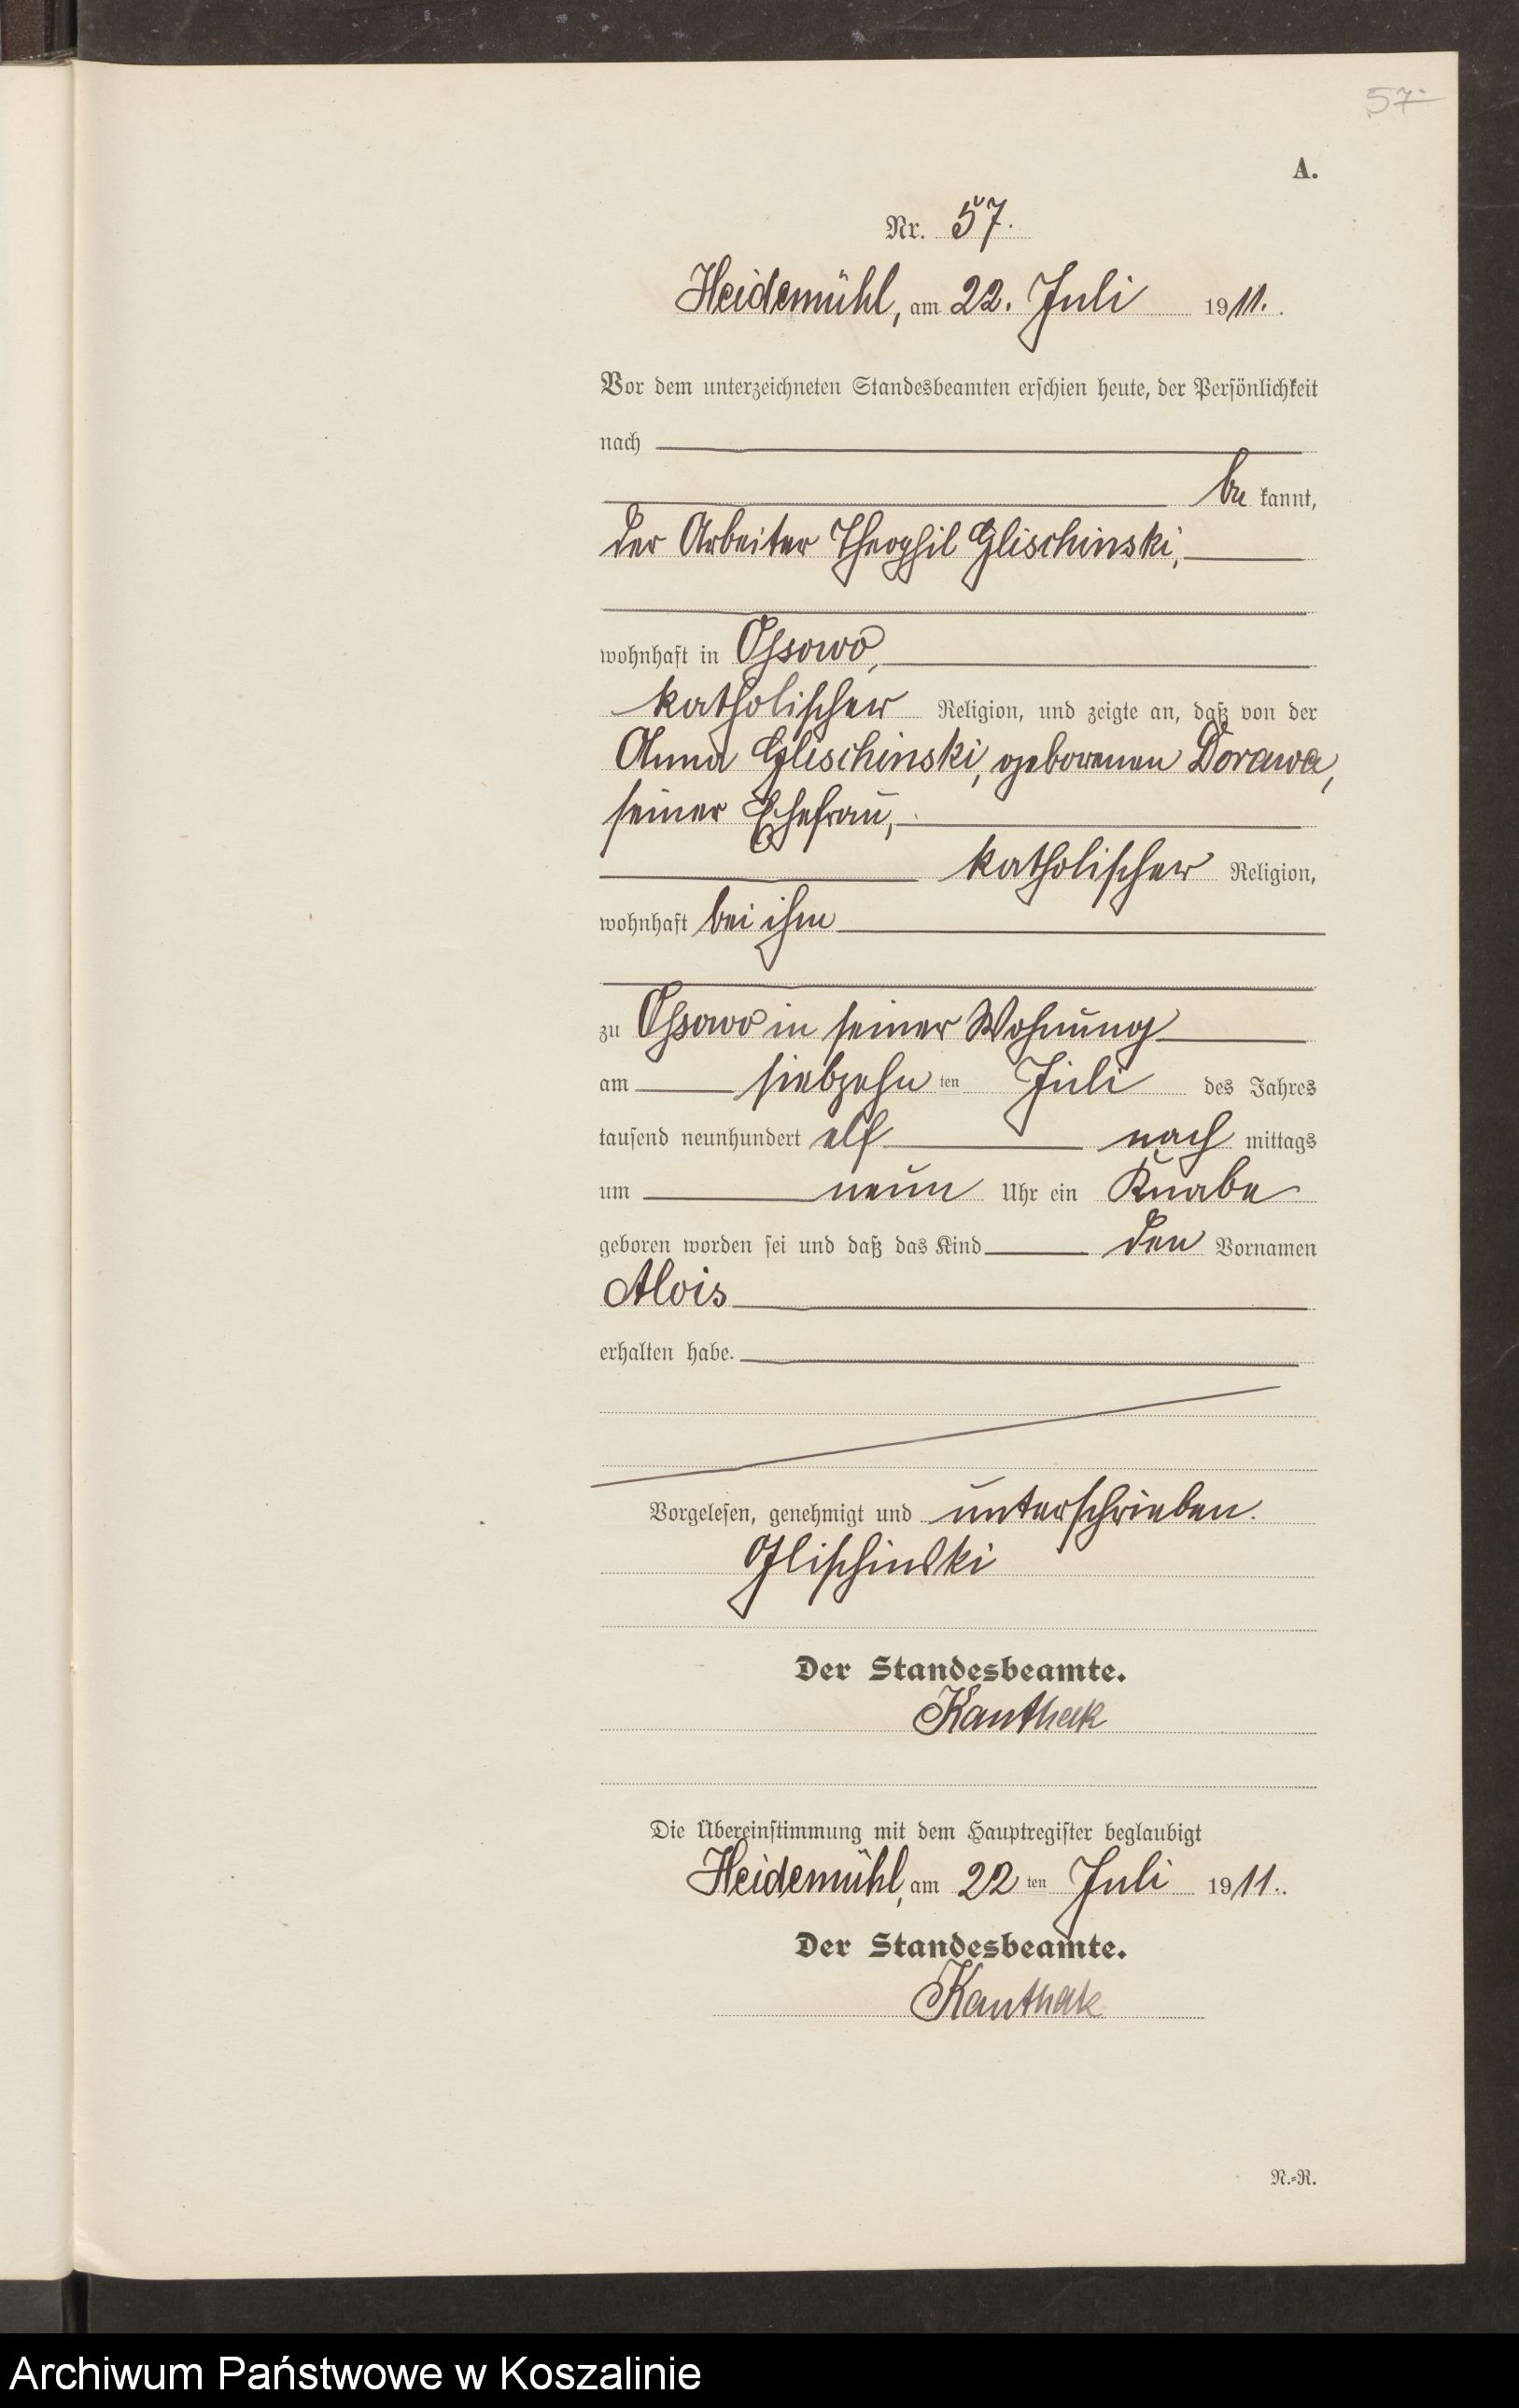 57.
A.
Nr. 57.
Heidemühl, am 22. Juli 1911.
Vor dem unterzeichneten Standesbeamten erschien heute, der Persönlichkeit
nach
be kannt,
der Arbeiter Theophil Glischinski,
wohnhaft in Ossowo,
katholischer Religion, und zeigte an, daß von der
Anna Glischinski, geborenen Dorawa,
seiner Ehefrau,
katholischer Religion,
wohnhaft bei ihm
zu Ossowo in seiner Wohnung
am siebzehn ten Juli des Jahres
tausend neunhundert elf nach mittags
um neun Uhr ein Knabe
geboren worden sei und daß das Kind den Vornamen
Alois
erhalten habe.
Vorgelesen, genehmigt und unterschrieben.
Glischinski
Der Standesbeamte.
Kanthak
Die Übereinstimmung mit dem Hauptregister beglaubigt
Heidemühl, am 22 ten Juli 1911.
Der Standesbeamte.
Kanthak
N.-R.
Archiwum Państwowe w Koszalinie